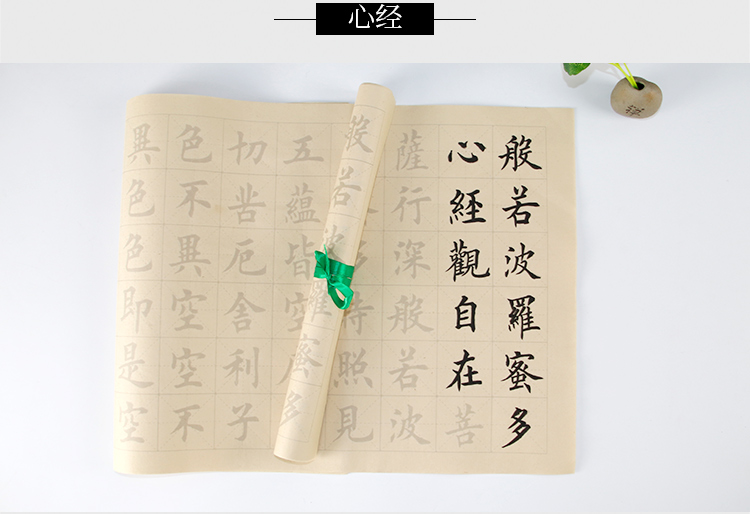 心经
般若波羅蜜多
心經觀自在菩
薩行深般若波
多時照見
般若波羅蜜多
五蘊皆空度
切苦厄舍利子
色不異空空不
異色色即是空